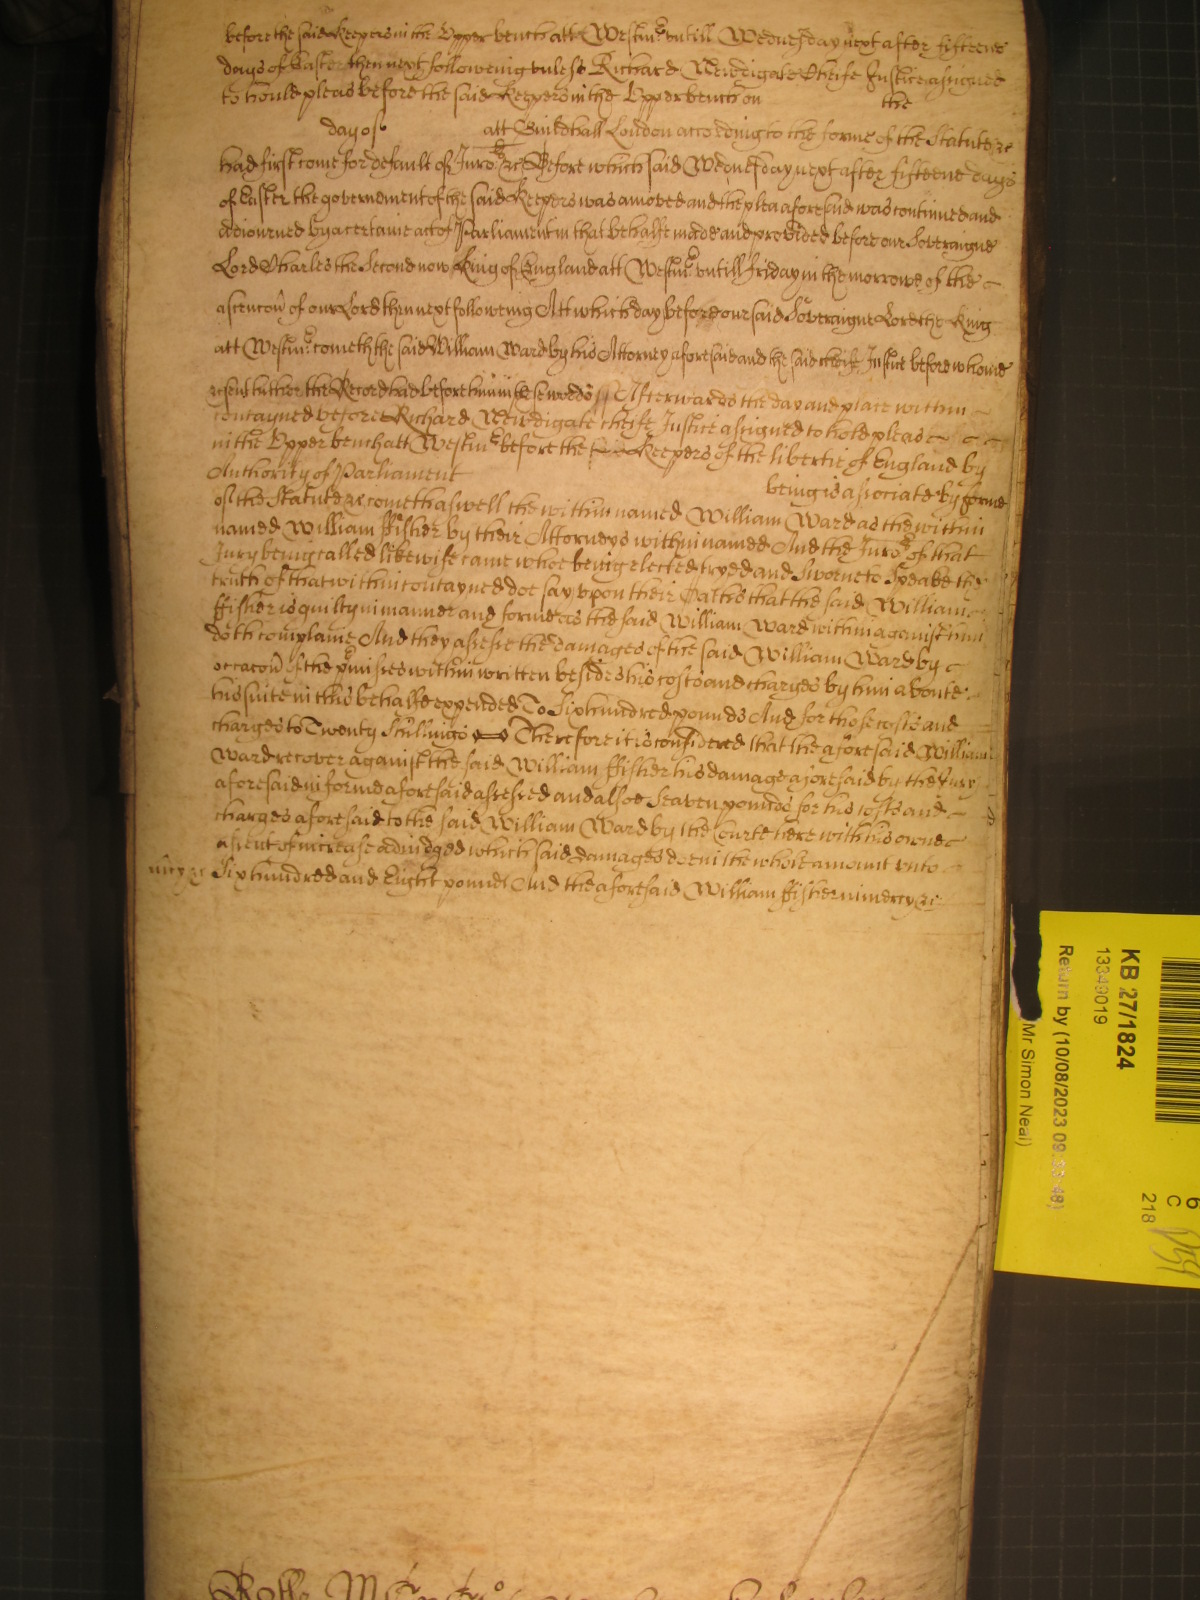 before the said Keepers in the Upper bench att Westmr untill Wednesday next after fifteene
dayes of Easter then next followeing unlesse Richard Newdigate Cheife Justice assigned
to hould pleas before the said Keepers in the Upper bench on the
day of att Guildhall London according to the forme of the Statute &c
had first come for default of Juror &c Before which said Wednesday next after fifteene dayes
of Easter the governement of the said Keepers was amoved and the plea aforesaid was continued and
adiourned by a certaine act of Parliament in that behalfe made and provided before our Soveraigne
Lord Charles the Second now King of England att Westmr untill friday in the morrowe of the
ascencon of our Lord then next followeing Att which day before our said Soveraigne Lord the King
att Westmr cometh the said William Ward by his Attorney aforesaid and the said cheife Justice before whome
&c sent hither the Record had before him in these words Afterwards the day and place within
contayned before Richard Newdigate cheife Justice assigned to hold pleas
in the Upper bench att Westmr before the Keepers of the libertie of England by
Authority of Parliament being is associated by forme
of the Statute &c cometh aswell the within named William Ward as the within
named William ffisher by their Attorneys within named And the Juror of that
Jury being called likewise came whoe being elected tryed and Sworne to Speake the
truth of that within contayned doe say upon their Oathes that the said William
ffisher is guilty in manner and forme as the said William Ward within against him
doth complaine And they assesse the damages of the said William Ward by
occacon of the pmisses within written besides his costs and charges by him aboute
his suite in this behalfe expended To Six hundred pounds And for those costs and
charges to Twenty Shillings Therefore it is considered that the aforesaid William
Ward recover against the said William ffisher his damage aforesaid by the Jury
aforesaid in forme aforesaid assessed and alsoe Seaven pounds for his costs and
charges aforesaid to the said William Ward by the Courte here with his owne
assent of increase adiudged which said damages doe in the whole amount unto
mcy &c Six hundred and Eight pounds And the aforesaid William ffisher in mercy &c
KB 27/1824
13349019
Return by (10/08/2023 09: :48)
Mr Simon Neal)
6
C
218